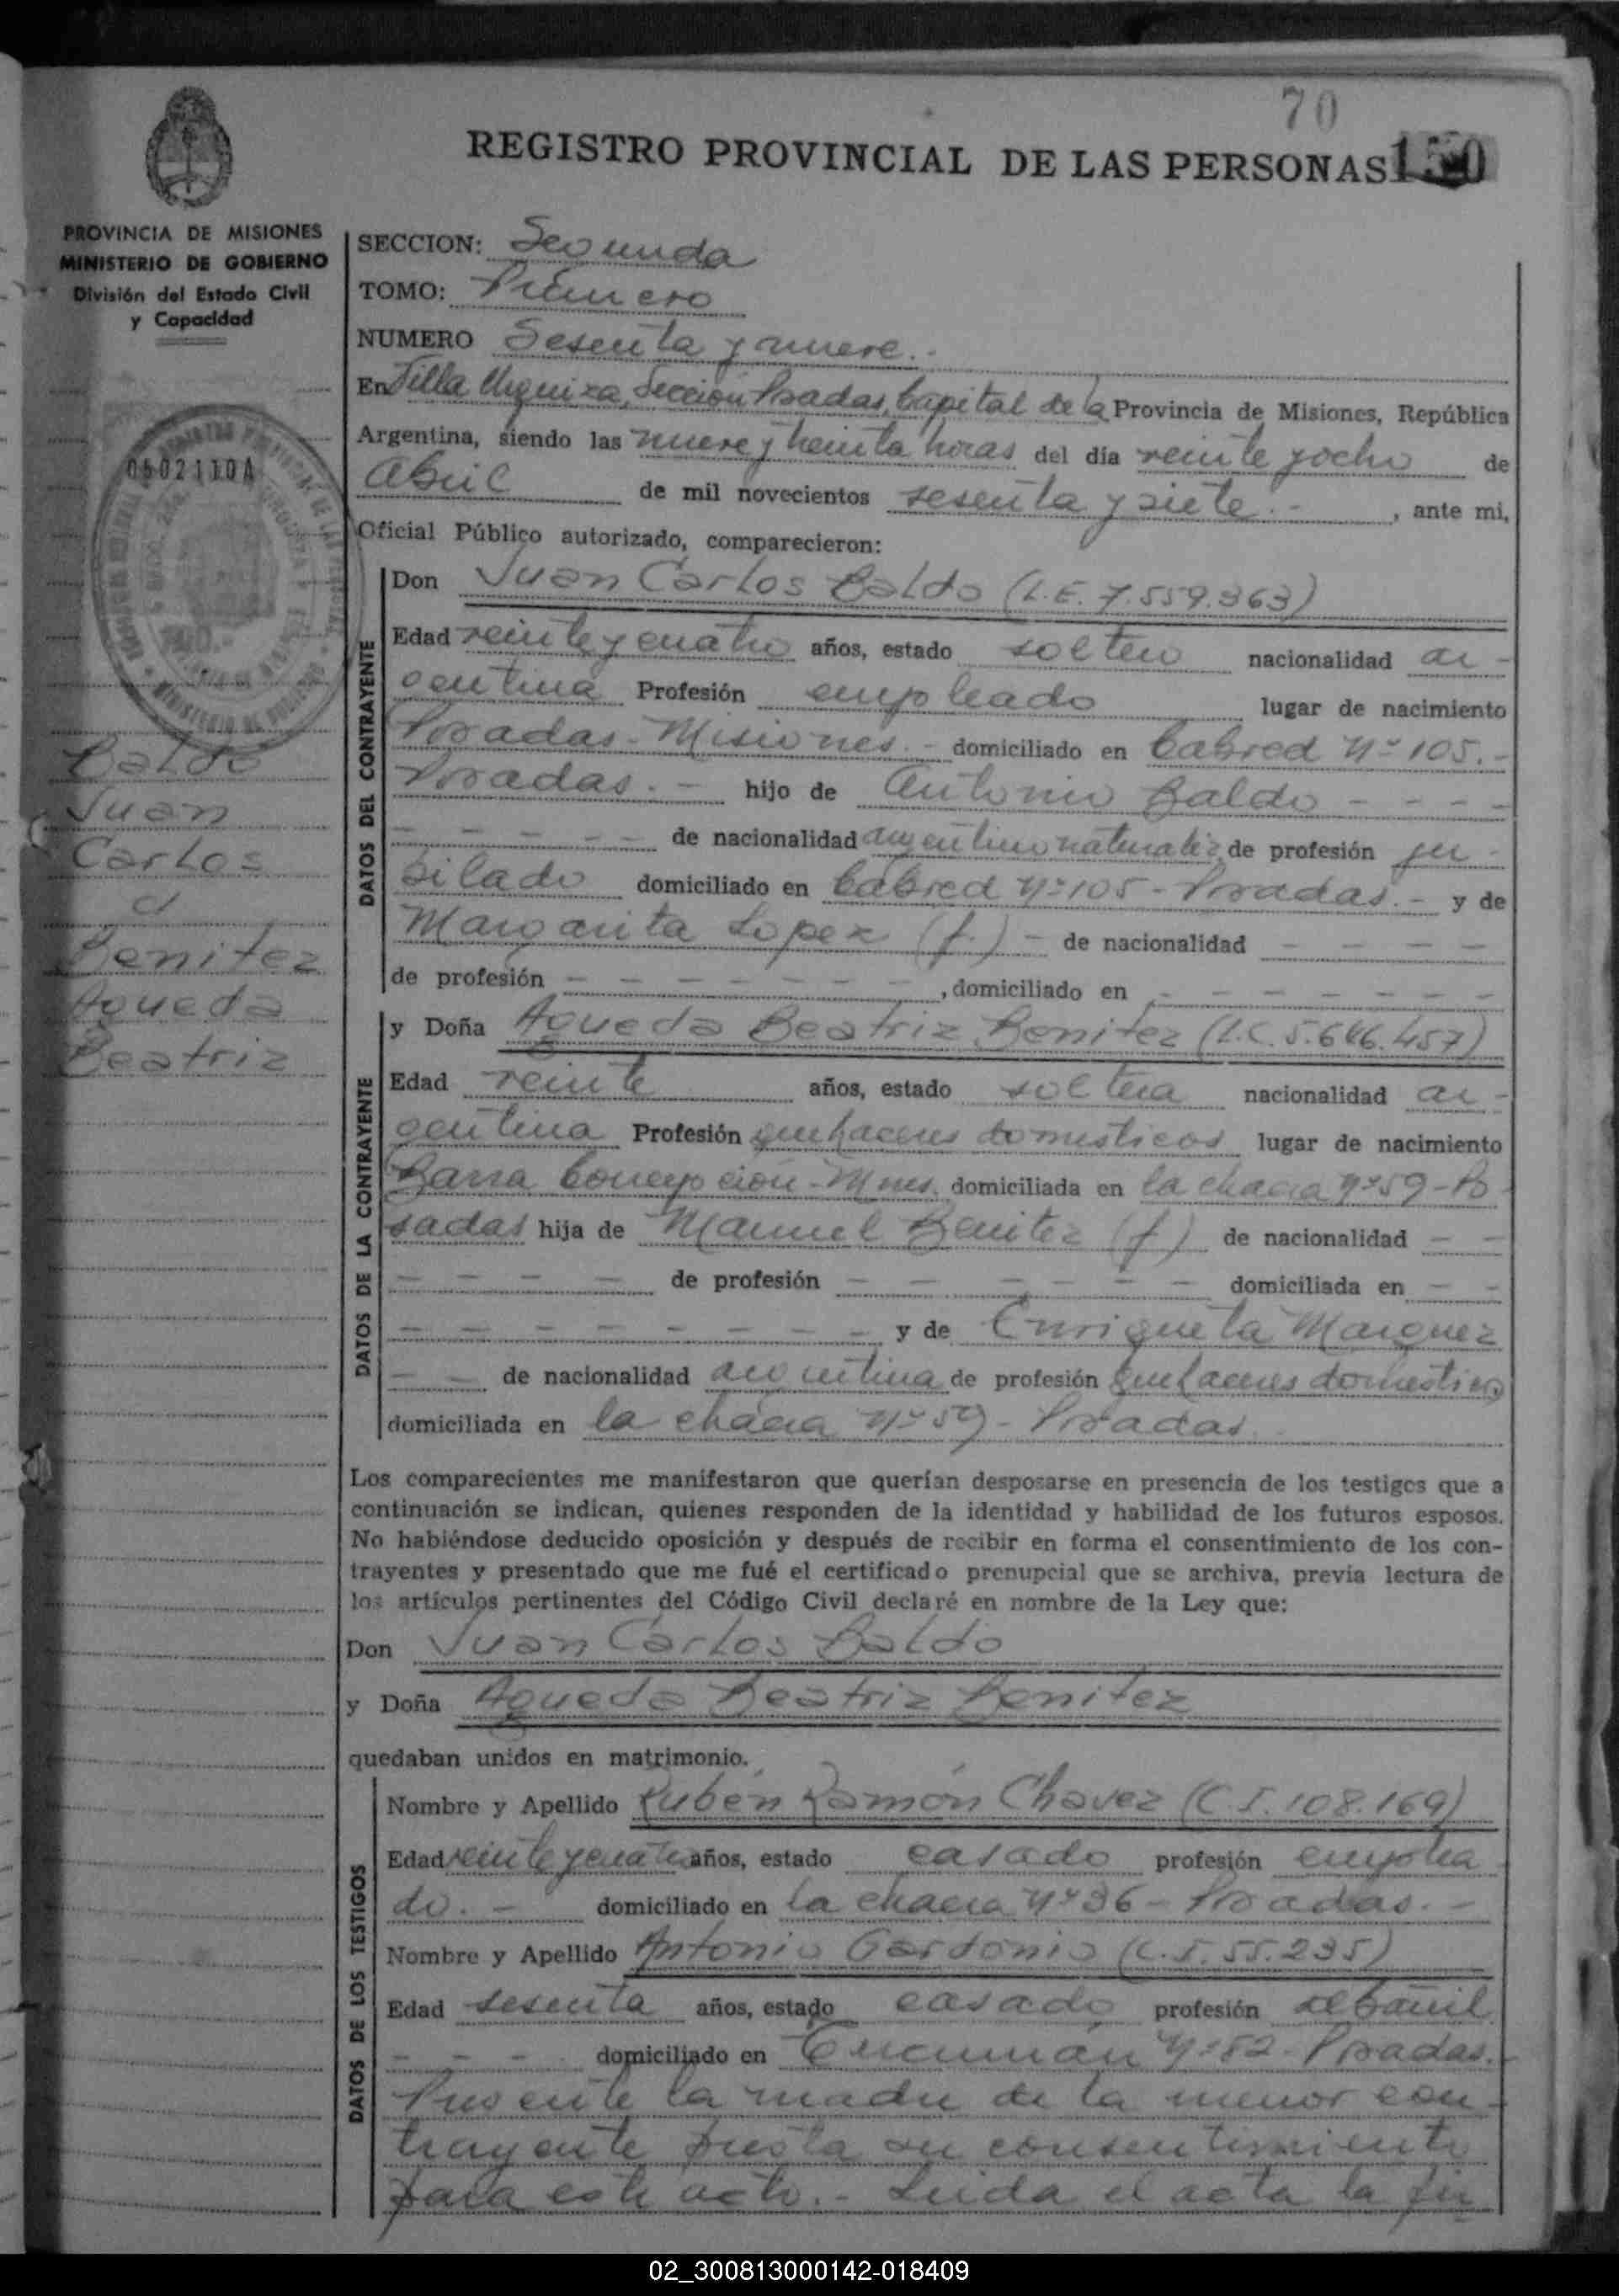 70
REGISTRO PROVINCIAL DE LAS PERSONAS 150
PROVINCIA DE MISIONES
MINISTERIO DE GOBIERNO
División del Estado Civil
y Capacidad
0502110A
SECCION: Segunda
TOMO: Primero
NUMERO Sesenta y nueve.-
En Villa Urquiza, Sección Posadas, Capital de la Provincia de Misiones, República
Argentina, siendo las nueve y treinta horas del día veinte y ocho de
abril de mil novecientos sesenta y siete.-, ante mi,
Oficial Público autorizado, comparecieron:
DATOS DEL CONTRAYENTE
Don Juan Carlos Baldo (L.E. 7.559.363)
Edad veinte y cuatro años, estado soltero nacionalidad ar-
gentina Profesión empleado lugar de nacimiento
Posadas-Misiones.- domiciliado en Cabred Nº 105.-
Posadas.- hijo de Antonio Baldo - - - -
- - - - - - de nacionalidad argentino naturaliz de profesión ju-
bilado domiciliado en Cabred Nº 105 - Posadas.- y de
Margarita Lopez (f.) - de nacionalidad - - - -
de profesión - - - - - - -, domiciliado en - - - - - - -
Baldo
Juan
Carlos
c/
Benitez
Agueda
Beatriz
DATOS DE LA CONTRAYENTE
y Doña Agueda Beatriz Benitez (L.C. 5.646.457)
Edad veinte años, estado soltera nacionalidad ar-
gentina Profesión quehaceres domesticos lugar de nacimiento
Barra Concepción-Mnes. domiciliada en la chacra Nº 59-Po-
sadas hija de Manuel Benitez (f) de nacionalidad - -
- - - - de profesión - - - - - - domiciliada en - -
- - - - - - - - y de Enriqueta Marquez
- - de nacionalidad argentina de profesión quehaceres domesticos
domiciliada en la chacra Nº 59 - Posadas.
Los comparecientes me manifestaron que querían desposarse en presencia de los testigos que a
continuación se indican, quienes responden de la identidad y habilidad de los futuros esposos.
No habiéndose deducido oposición y después de recibir en forma el consentimiento de los con-
trayentes y presentado que me fué el certificado prenupcial que se archiva, previa lectura de
los artículos pertinentes del Código Civil declaré en nombre de la Ley que:
Don Juan Carlos Baldo
y Doña Agueda Beatriz Benitez
quedaban unidos en matrimonio.
DATOS DE LOS TESTIGOS
Nombre y Apellido Rubén Ramón Chavez (C.I. 108.169)
Edad veinte y cuatro años, estado casado profesión emplea-
do.- domiciliado en la chacra Nº 36 - Posadas.-
Nombre y Apellido Antonio Gardonio (C.I. 55.235)
Edad sesenta años, estado casado profesión albañil
- - - - domiciliado en Tucumán Nº 82 - Posadas.
Presente la madre de la menor con-
trayente presta su consentimiento
para este acto.- Leida el acta la fir-
02_300813000142-018409